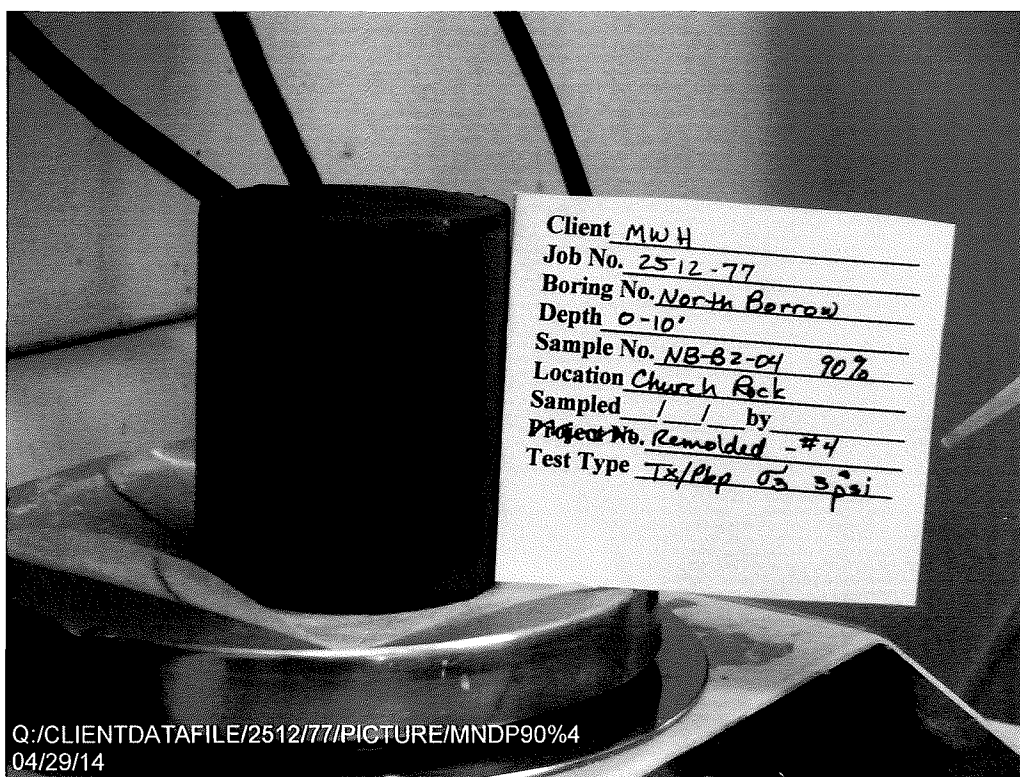 Client MWH
Job No. 2512-77
Boring No. North Borrow
Depth 0-10'
Sample No. NB-B2-04 90%
Location Church Rock
Sampled__/__/__by
Project No. Remolded -#4
Test Type Tx/Pbp σ3 3psi
Q:/CLIENTDATAFILE/2512/77/PICTURE/MNDP90%4
04/29/14